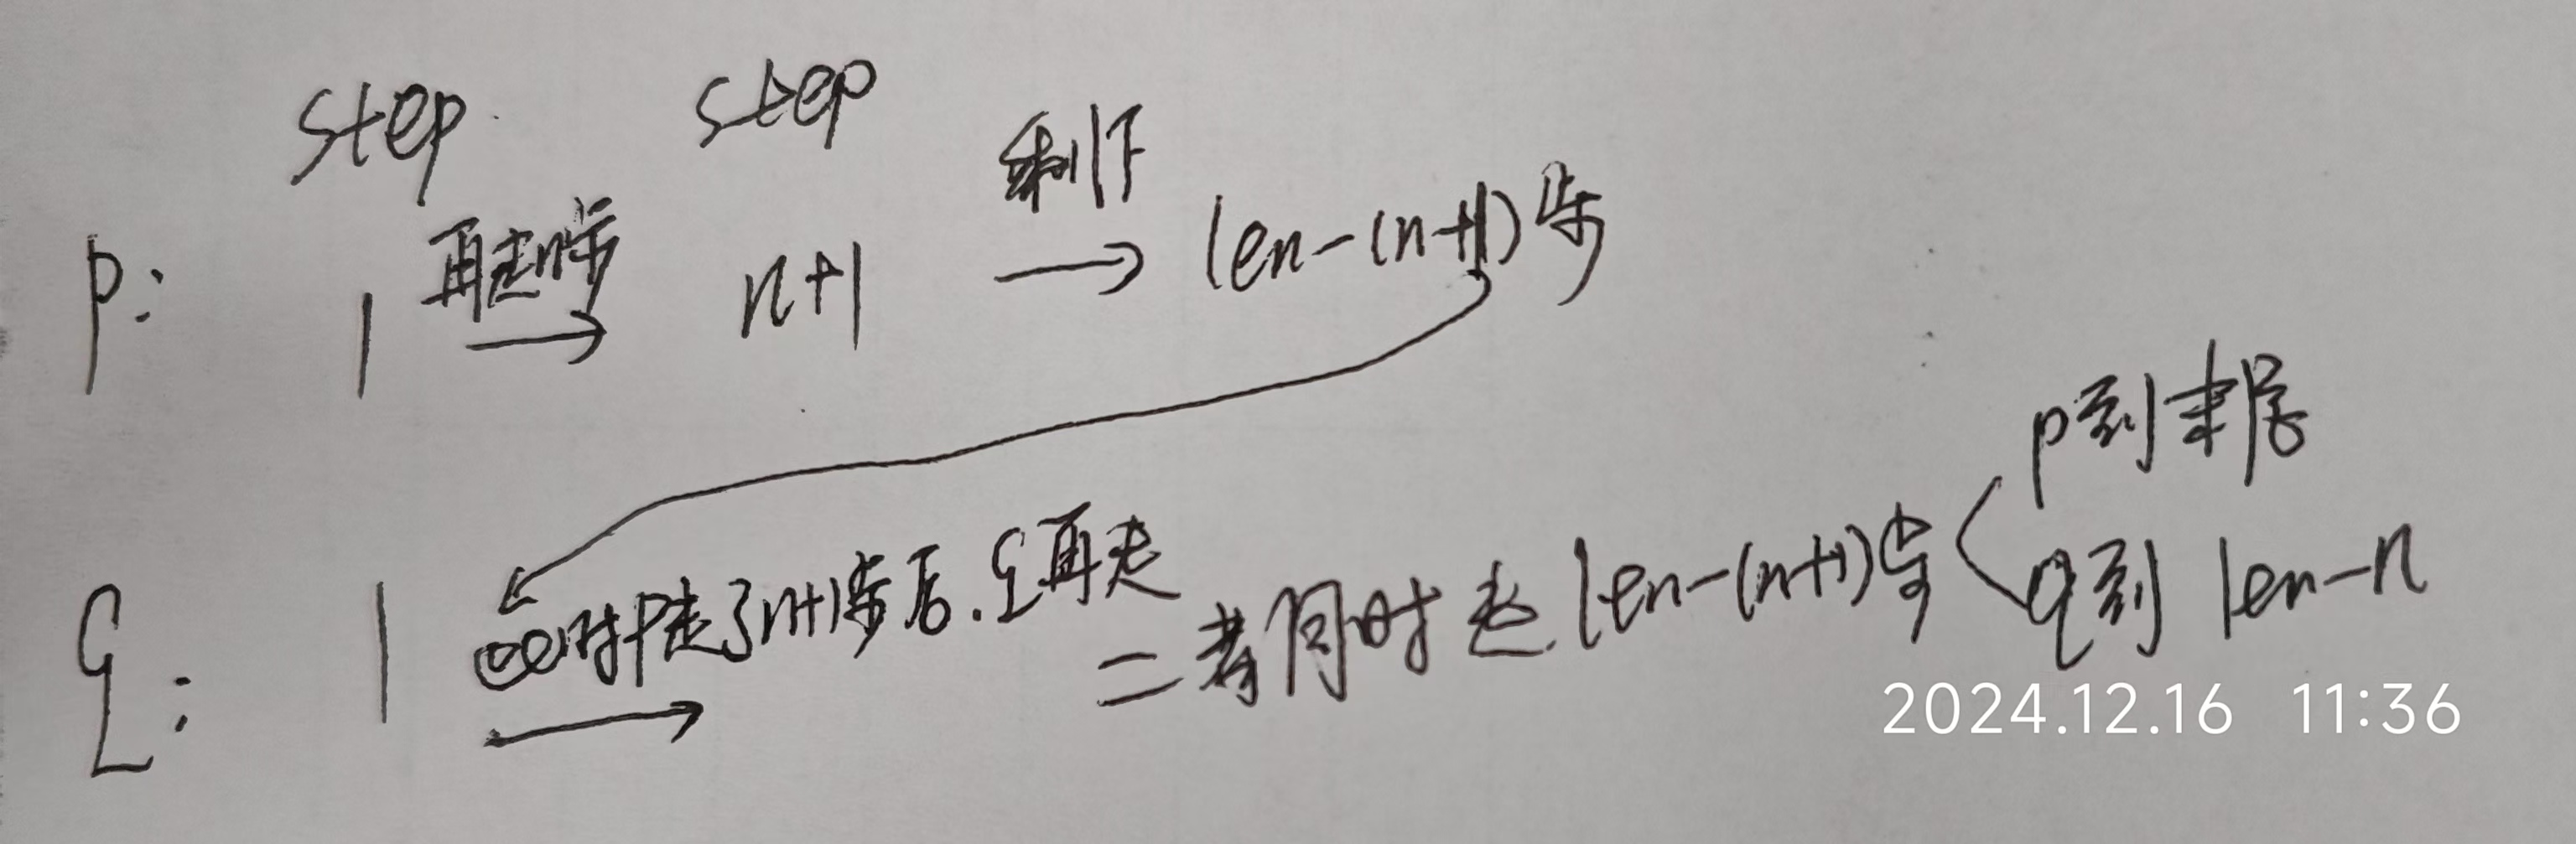 step step
剩下
p: 1 再走n步 → n+1 → len-(n+1)步
p到末尾
q: 1 时p走了n+1步后.q再走 → 二者同时走 len-(n+1)步 q到 len-n
2024.12.16 11:36